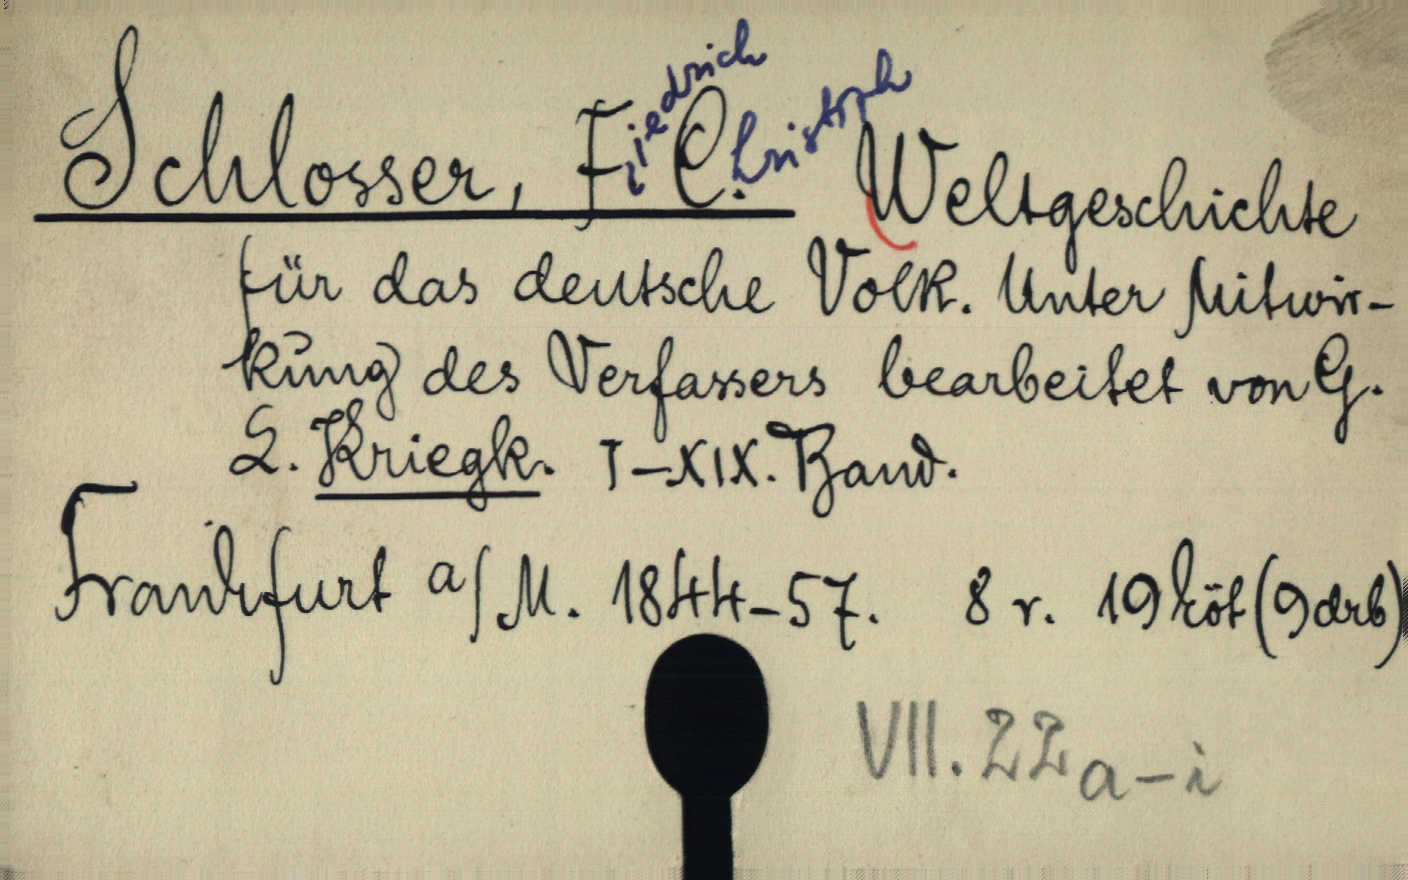 Schlosser, Friedrich C.hristoph Weltgeschichte
für das deutsche Volk. Unter Mitwir-
kung des Verfassers bearbeitet von G.
L. Kriegk. I-XIX. Band.
Frankfurt a/M. 1844-57. 8 r. 19 köt (9 drb)
VII. 22 a-i